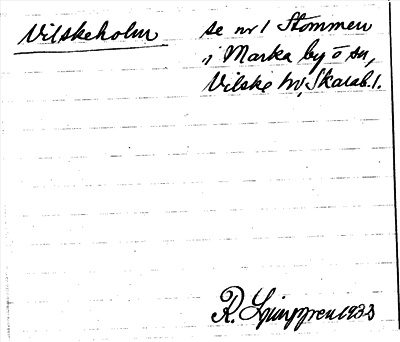 Vilskeholm
se nr 1 Stommen
i Marka by o sn,
Vilske hd, Skarab. l.
R. Ljunggren 1933